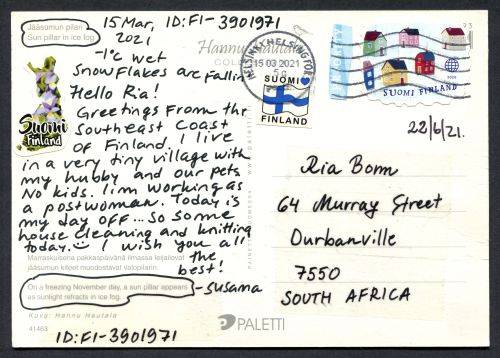 Jääsumun pilari
Sun pillar in ice fog
15 Mar, ID: FI-3901971
2021
-1°C wet
snowflakes are fallin
Hello Ria!
Greetings from the
Southeast Coast
of Finland. I live
in a very tiny village with
my hubby and our pets.
No kids. I'm working as
a postwoman. Today is
my day off... so some
house cleaning and knitting
today. I wish you all
the
best!
-Susanna
Marraskuisena pakkaspäivänä ilmassa leijailevat
jääsumun kiteet muodostavat valopilarin.
On a freezing November day, a sun pillar appears
as sunlight refracts in ice fog.
Kuva: Hannu Hautala
41463
ID: FI-3901971
Suomi
Finland
Hannu Hautala
HELSINKI HELSINGFORS
15 03 2021
SUOMI
FINLAND
SUOMI FINLAND
22/6/21.
Ria Bomm
64 Murray Street
Durbanville
7550
SOUTH AFRICA
PALETTI